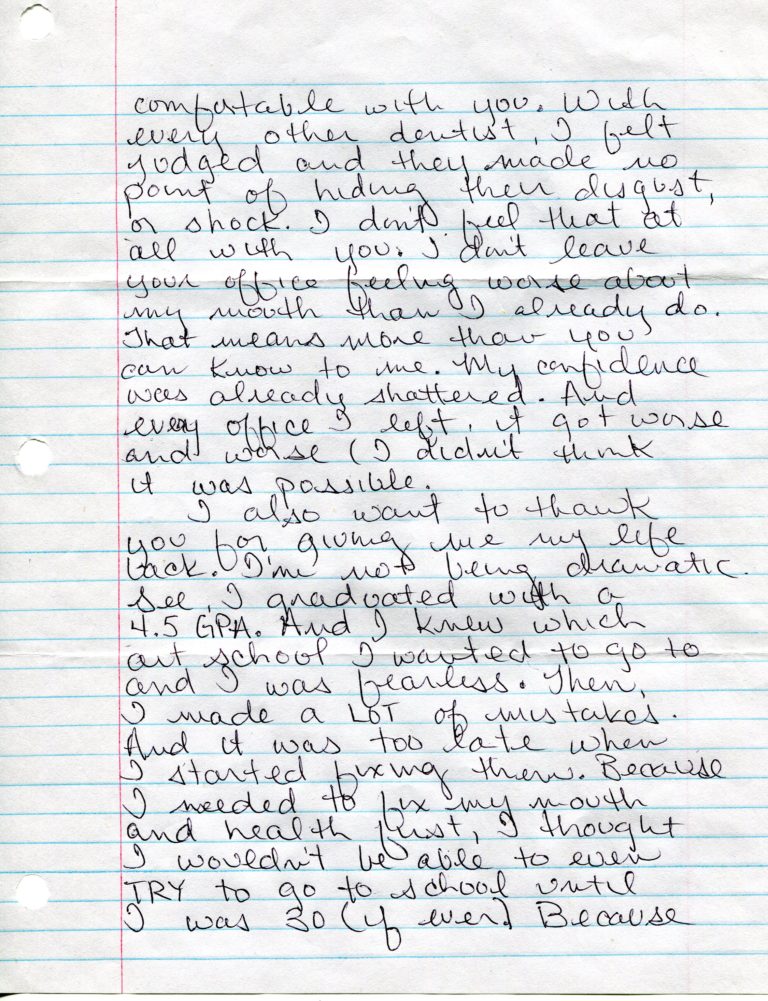 comfortable with you. With
every other dentist, I felt
judged and they made no
point of hiding their disgust,
or shock. I don't feel that at
all with you. I don't leave
your office feeling worse about
my mouth than I already do.
That means more than you
can know to me. My confidence
was already shattered. And
every office I left, it got worse
and worse (I didn't think
it was possible.
I also want to thank
you for giving me my life
back. I'm not being dramatic.
See, I graduated with a
4.5 GPA. And I knew which
art school I wanted to go to
and I was fearless. Then,
I made a LOT of mistakes.
And it was too late when
I started fixing them. Because
I needed to fix my mouth
and health first, I thought
I wouldn't be able to even
TRY to go to school until
I was 30 (if ever) Because